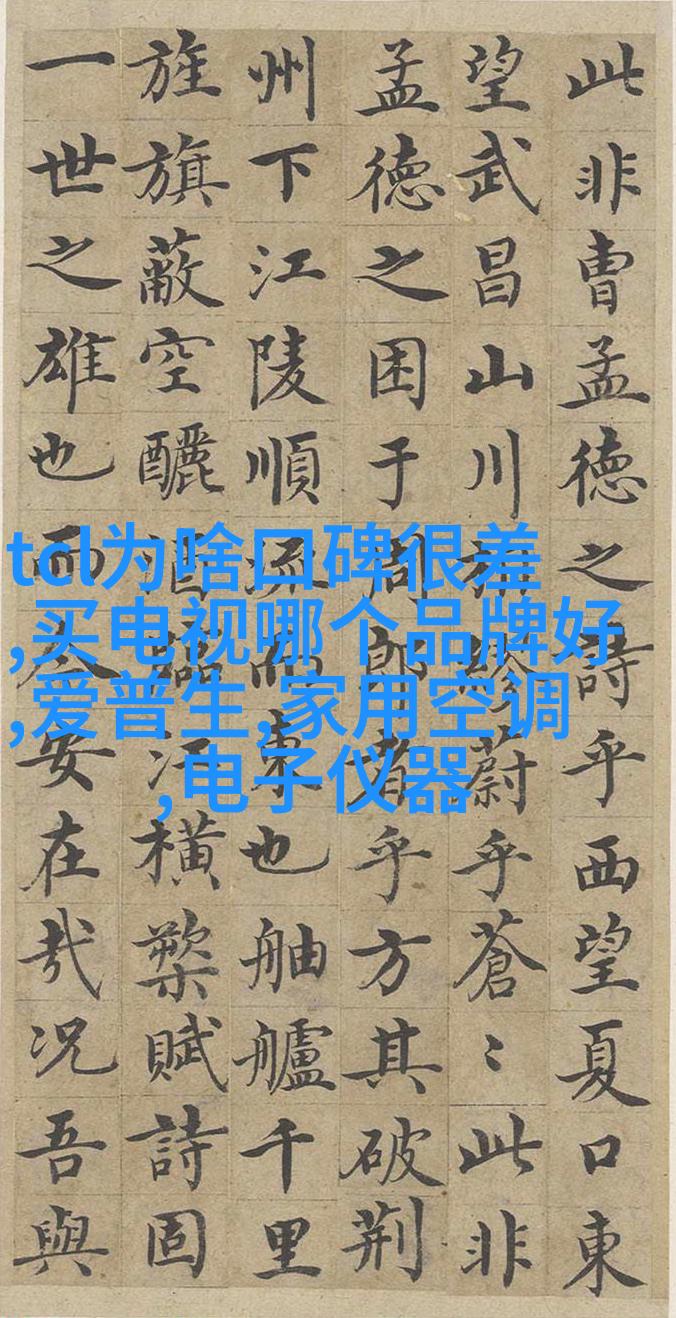 此非曹孟德之詩乎西望夏口東
望武昌山川相繆蔚乎蒼〻此非
孟德之困于周郎者乎方其破荆
州下江陵順流而東也舳艫千里
旌旗蔽空釃酒臨江橫槊賦詩固
一世之雄也而今安在哉况吾與
tcl为啥口碑很差
,买电视哪个品牌好
,爱普生,家用空调
,电子仪器